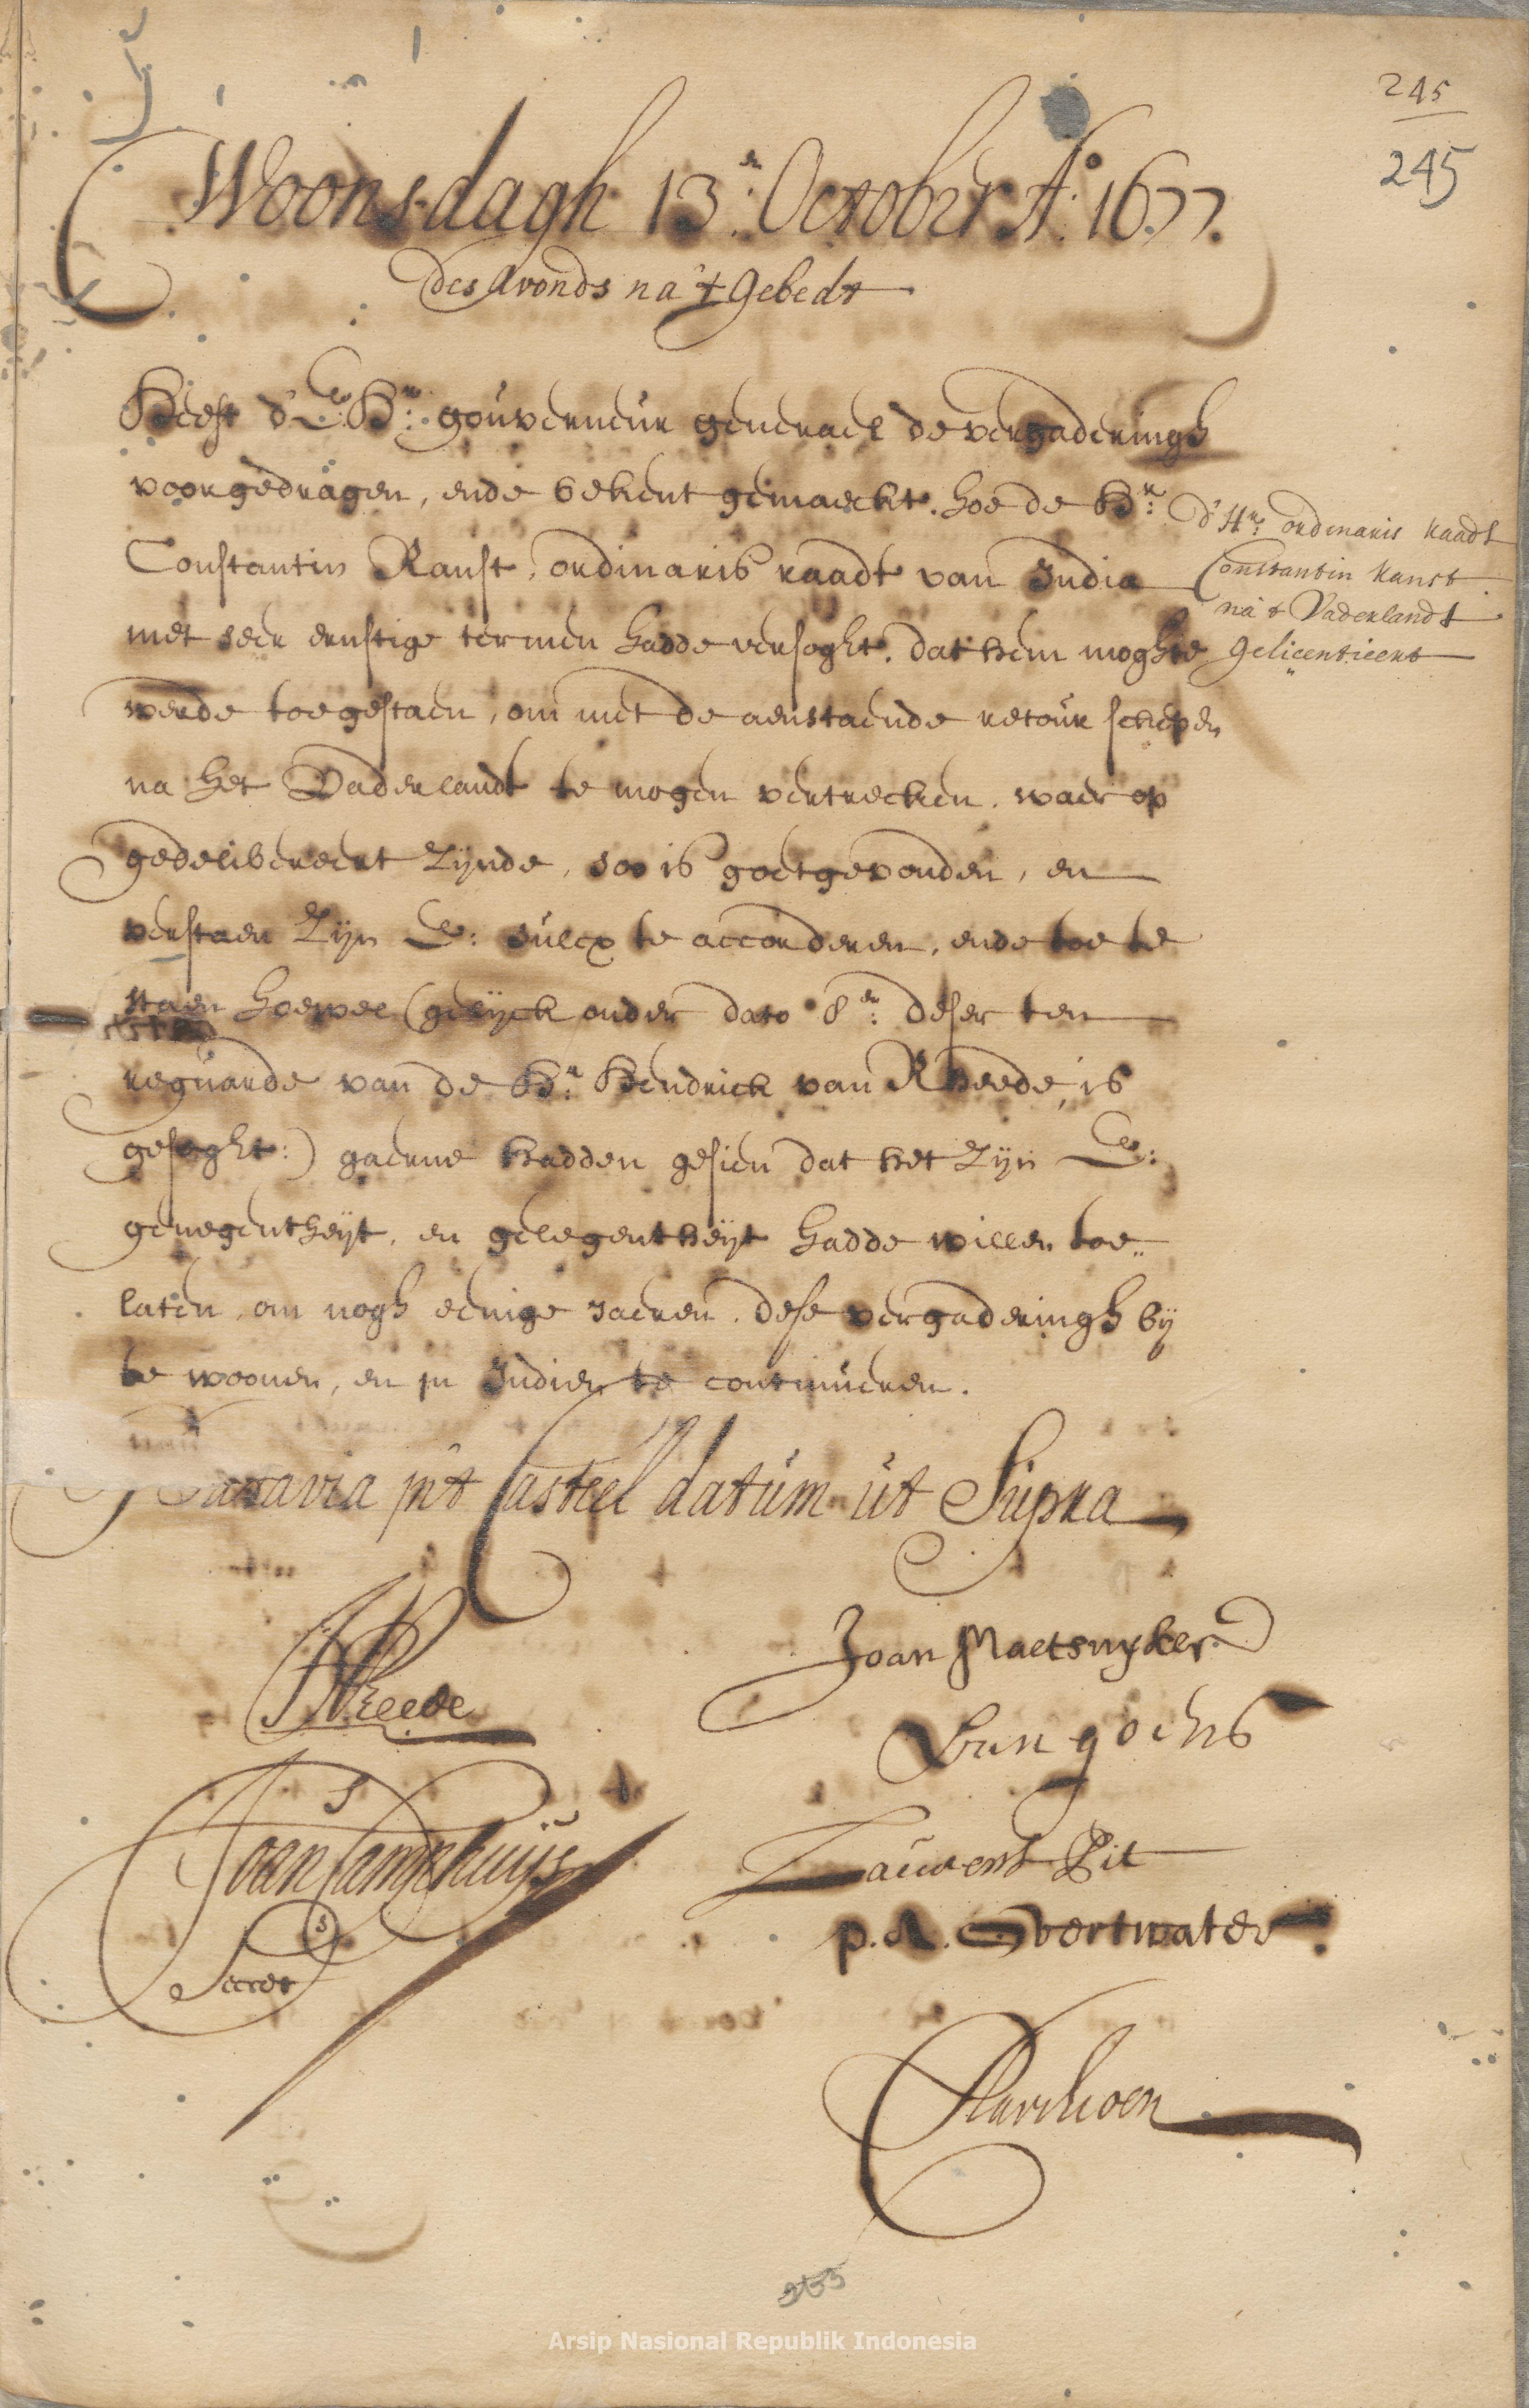 245
245
Woonsdagh 13.en October Ao. 1677.
des Avonds na 't Gebedt
Heeft d'E. Hr: gouverneur generael de vergaderingh
voorgedragen, ende bekent gemaeckt, hoe de Hr:
Constantin Ranst, ordinaris raadt van India
met seer ernstige termen hadde versoght, dat hem moghte
werde toegestaen, om met de aenstaende retour schepen
na het Vaderlandt te mogen vertrecken, waer op
gedelibereert zijnde, soo is goetgevonden, en
verstaen zijn E: sulcx te accorderen, ende toe te
staen hoewel (gelijck onder dato 8en: deser ten
reguarde van de Hr: Hendrick van Rheede, is
geseght:) gaerne hadden gesien dat het zijn E:
genegentheijt, en gelegentheijt hadde willen toe„
laten, om nogh eenige jaeren, dese vergaderingh bij
te woonen, en in Indien te continueren.
d' Hr: ordinaris raadt
Constantin Ranst
na 't Vaderlandt
gelicentieert
Batavia in 't Casteel datum ut Supra
Joan Maetsuyker
HVReede
Van goens
Joan Camphuijs
Secrets
Laurens Pit
p. A. Overtwater
255
Arsip Nasional Republik Indonesia